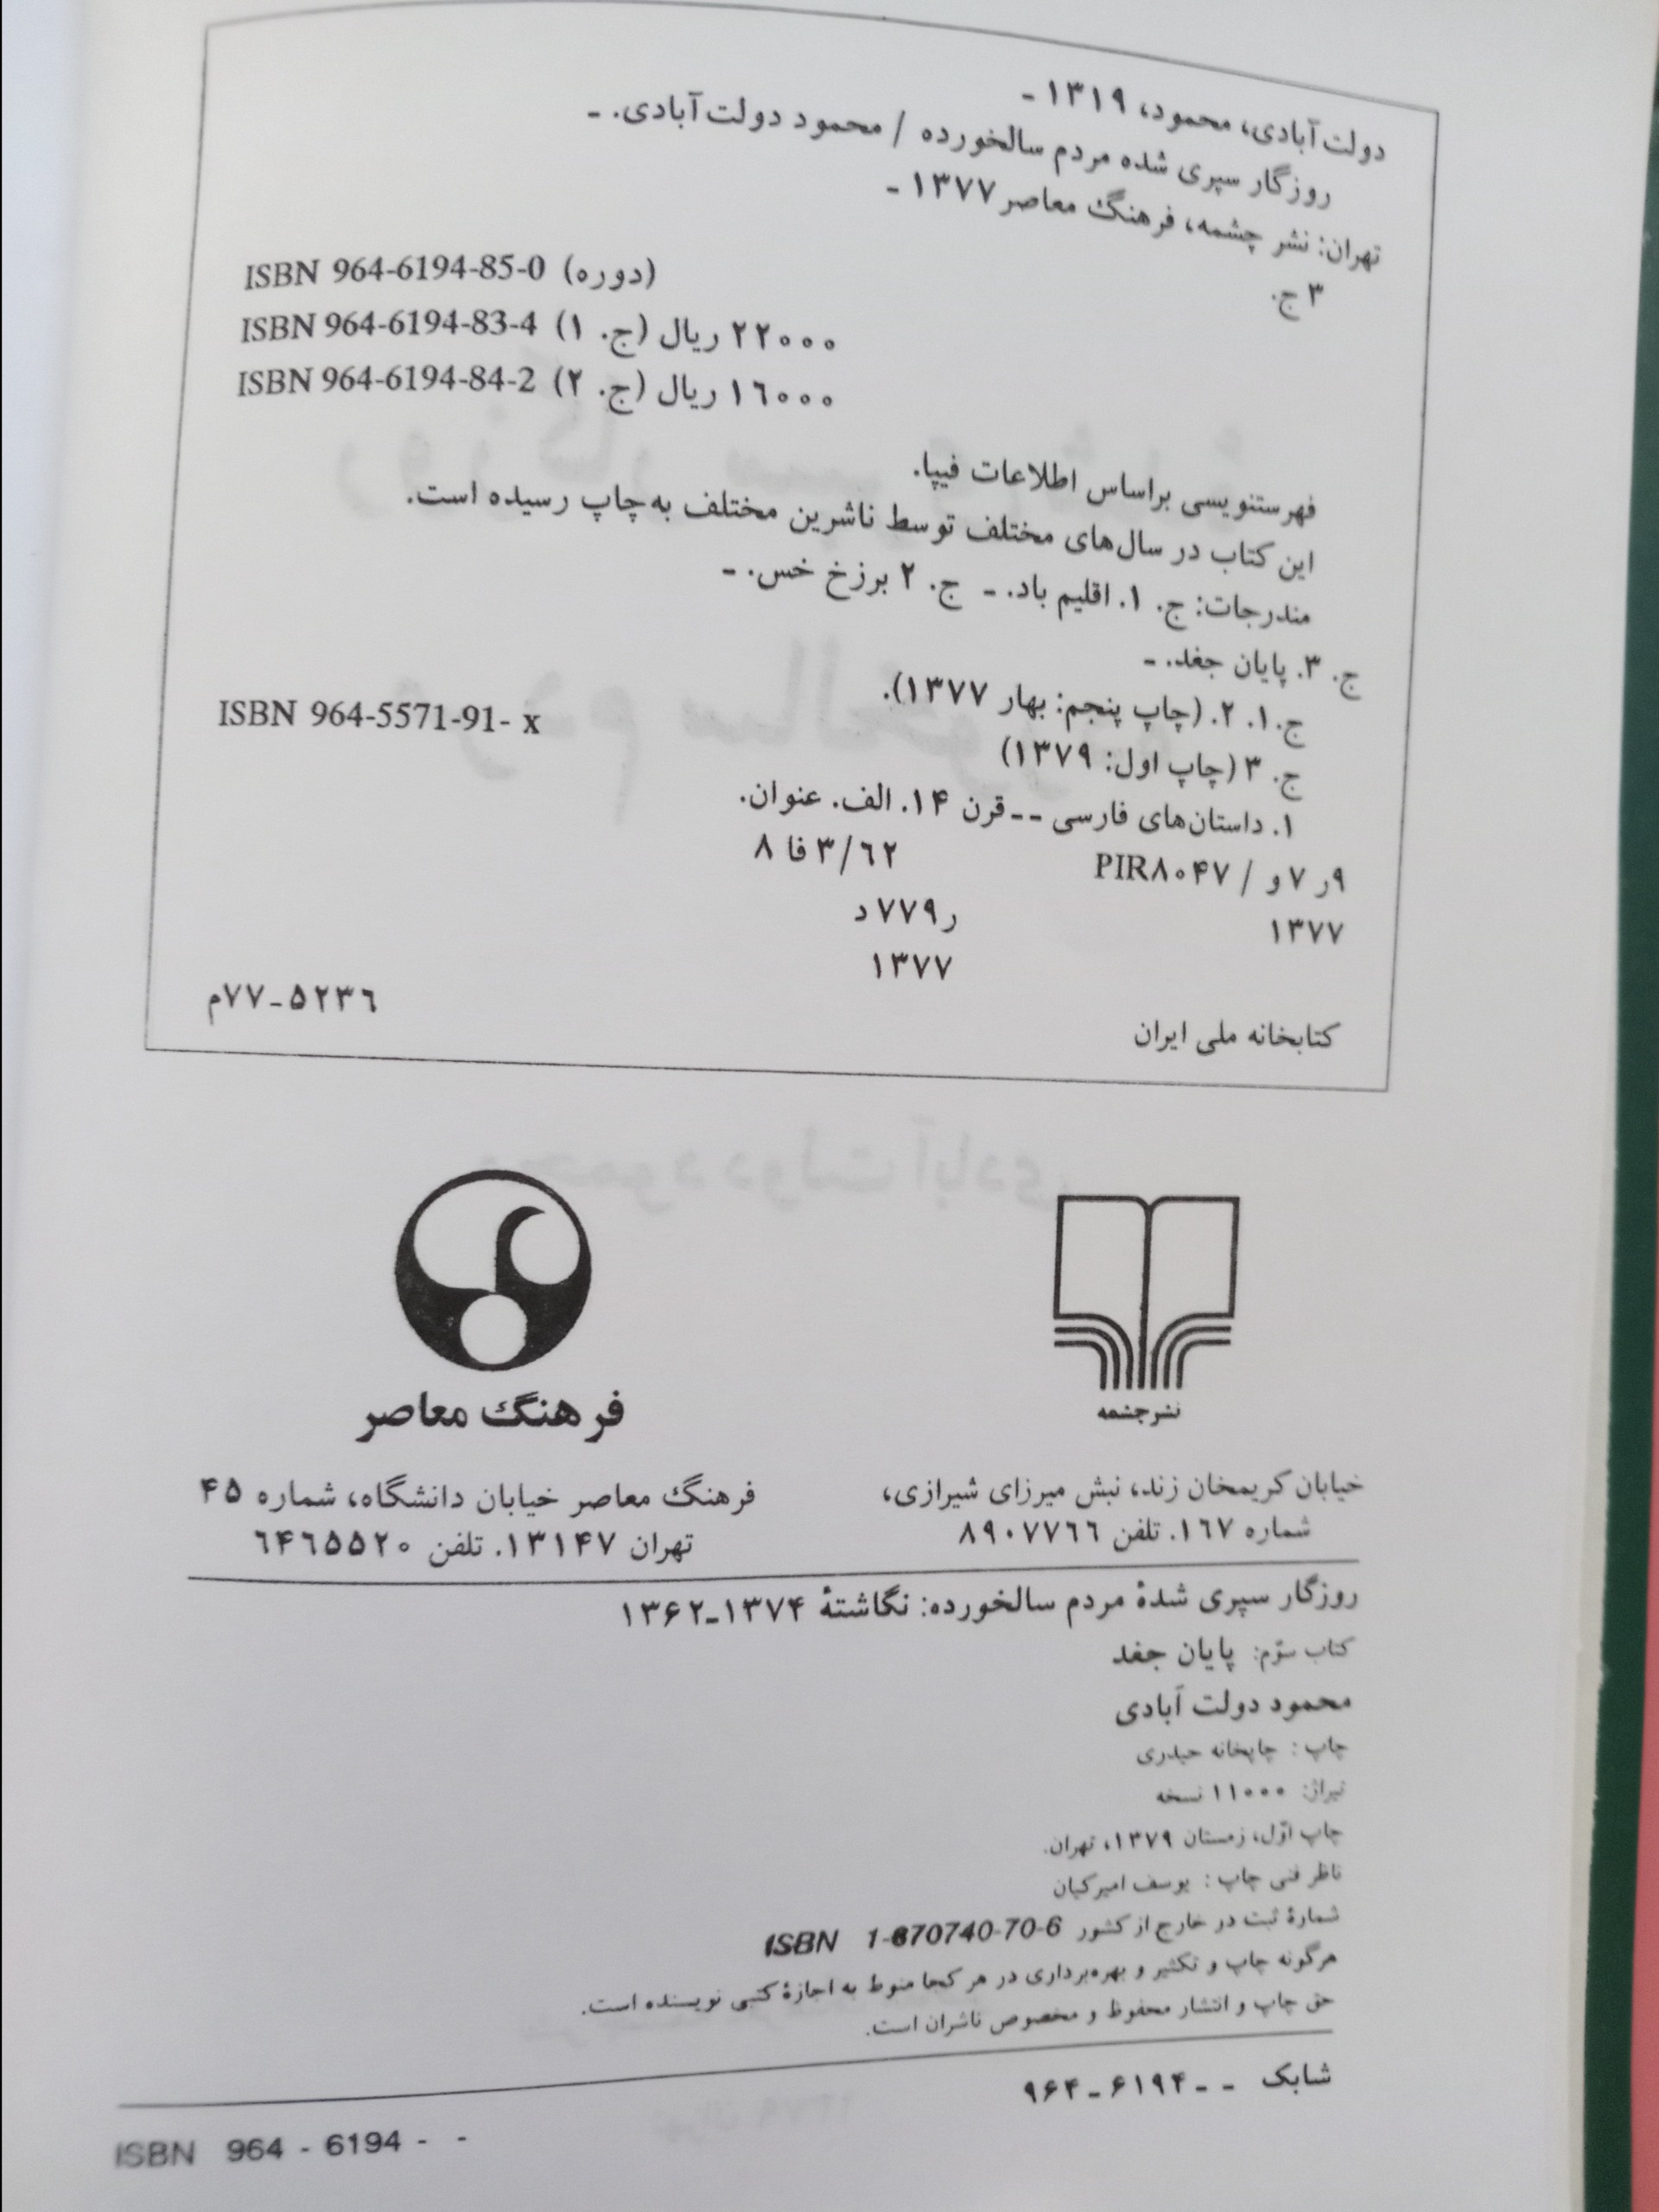 دولت‌آبادی، محمود، ۱۳۱۹ -
روزگار سپری شده مردم سالخورده / محمود دولت‌آبادی. -
تهران: نشر چشمه، فرهنگ معاصر ۱۳۷۷ -
۳ ج.
ISBN 964-6194-85-0 (دوره)
ISBN 964-6194-83-4 (ج. ۱) ۲۲۰۰۰ ریال
ISBN 964-6194-84-2 (ج. ۲) ۱۶۰۰۰ ریال
فهرستنویسی براساس اطلاعات فیپا.
این کتاب در سال‌های مختلف توسط ناشرین مختلف به‌چاپ رسیده است.
مندرجات: ج. ۱. اقلیم باد. - ج. ۲ برزخ خس. -
ج. ۳. پایان جغد. -
ج.۱. ۲. (چاپ پنجم: بهار ۱۳۷۷).
ISBN 964-5571-91- x
ج. ۳ (چاپ اول: ۱۳۷۹)
۱. داستان‌های فارسی -- قرن ۱۴. الف. عنوان.
۹ر ۷و / PIR۸۰۴۷ ۳/۶۲ فا ۸
ر۷۷۹د
۱۳۷۷
۱۳۷۷
۷۷-۵۲۳۶م
کتابخانه ملی ایران
نشرچشمه
فرهنگ معاصر
خیابان کریمخان زند، نبش میرزای شیرازی،
شماره ۱۶۷. تلفن ۸۹۰۷۷۶۶
فرهنگ معاصر خیابان دانشگاه، شماره ۴۵
تهران ۱۳۱۴۷. تلفن ۶۴۶۵۵۲۰
روزگار سپری شدهٔ مردم سالخورده: نگاشتهٔ ۱۳۷۴-۱۳۶۲
کتاب سوّم: پایان جغد
محمود دولت آبادی
چاپ : چاپخانه حیدری
تیراژ: ۱۱۰۰۰ نسخه
چاپ اوّل، زمستان ۱۳۷۹، تهران.
ناظر فنی چاپ : یوسف امیرکیان
شمارهٔ ثبت در خارج از کشور ISBN 1-870740-70-6
هرگونه چاپ و تکثیر و بهره‌برداری در هر کجا منوط به اجازهٔ کتبی نویسنده است.
حق چاپ و انتشار محفوظ و مخصوص ناشران است.
شابک - -۶۱۹۴-۹۶۴
ISBN 964 - 6194 - -